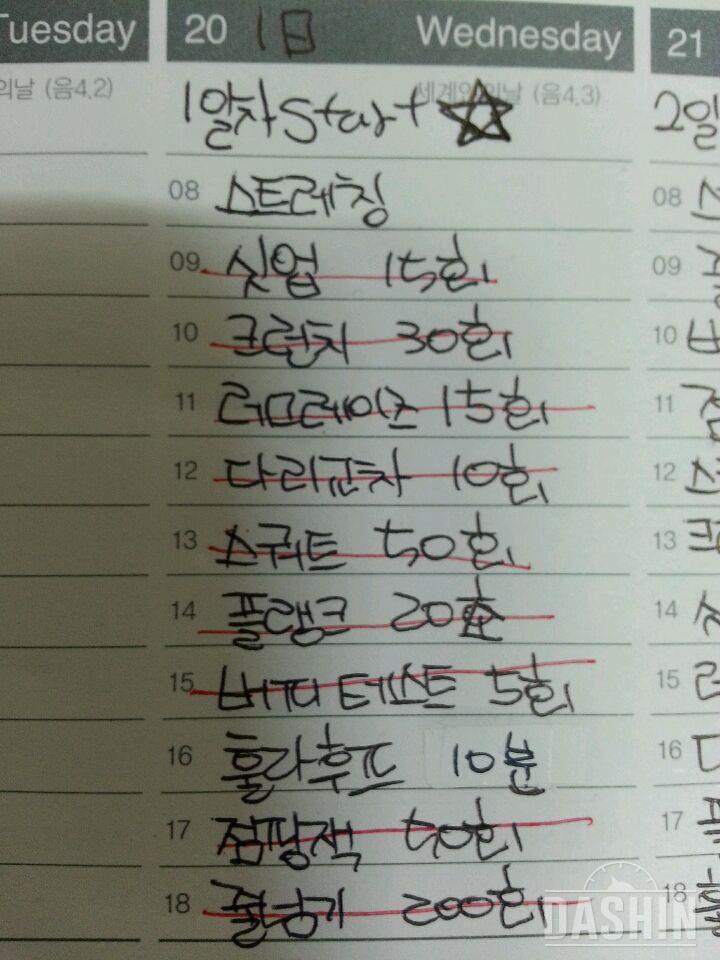 Tuesday
20 1日 Wednesday
21
의날 (음4.2)
(음4.3)
1일차 Start ☆
2일
08 스트레칭
08 스
09 싯업 15회
09
10 크런치 30회
10 버
11 러그레이즈 15회
11 점
12 다리교차 10회
12 스
13 스쿼트 50회
13 크
14 플랭크 20초
14 싯
15 버피테스트 5회
15
16 훌라후프 10분
16 다
17 점핑잭 50회
17 플
18 줄넘기 200회
18
DASHIN